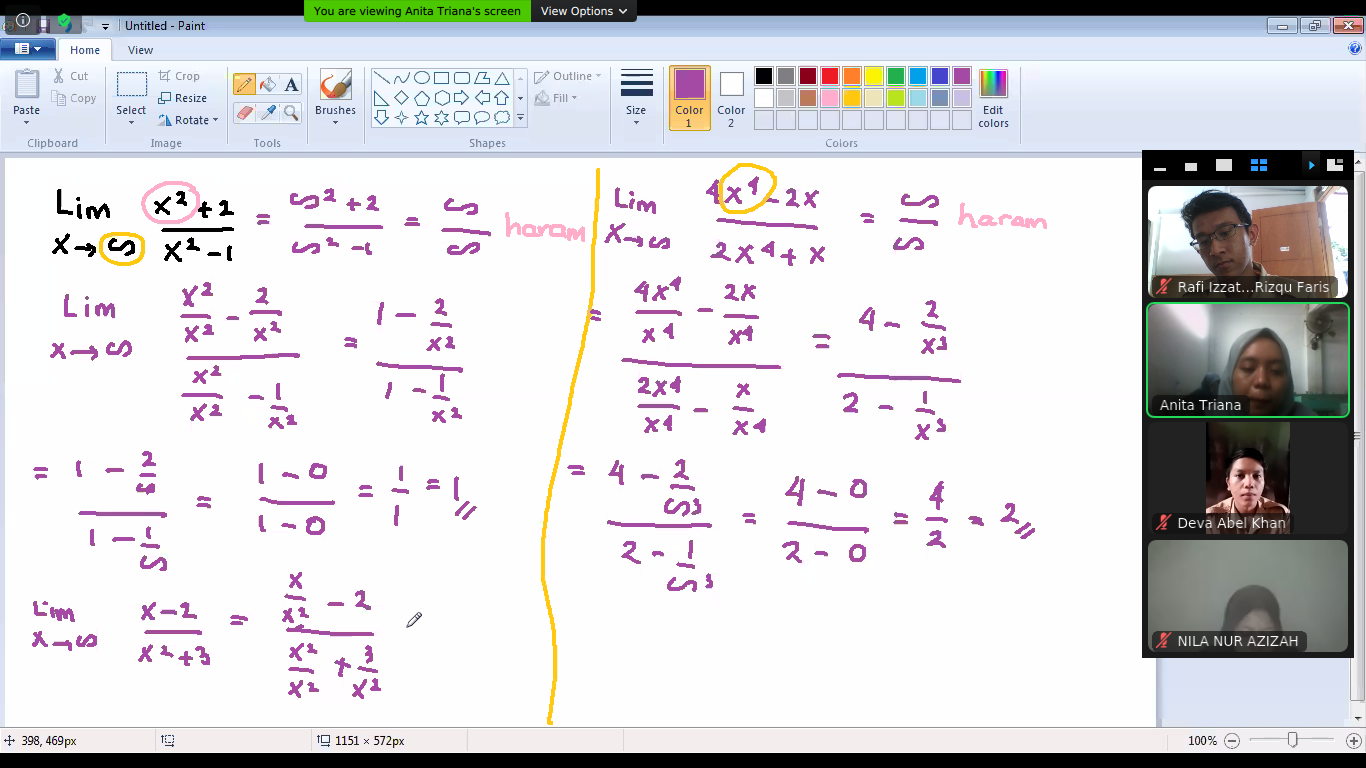 You are viewing Anita Triana's screen
View Options
Untitled - Paint
Home
View
Paste
Cut
Copy
Clipboard
Select
Crop
Resize
Rotate
Image
Tools
Brushes
Shapes
Outline
Fill
Size
Color 1
Color 2
Edit colors
Colors
Lim x→∞ (x²+2)/(x²-1) = (∞²+2)/(∞²-1) = ∞/∞ haram
Lim x→∞ (x²/x² - 2/x²)/(x²/x² - 1/x²) = (1 - 2/x²)/(1 - 1/x²)
= (1 - 2/∞)/(1 - 1/∞) = (1-0)/(1-0) = 1/1 = 1//
Lim x→∞ (x-2)/(x²+3) = (x/x² - 2)/(x²/x² + 3/x²)
Lim x→∞ (4x⁴-2x)/(2x⁴+x) = ∞/∞ haram
= (4x⁴/x⁴ - 2x/x⁴)/(2x⁴/x⁴ - x/x⁴) = (4 - 2/x³)/(2 - 1/x³)
= (4 - 2/∞³)/(2 - 1/∞³) = (4-0)/(2-0) = 4/2 = 2//
Rafi Izzat...Rizqu Faris
Anita Triana
Deva Abel Khan
NILA NUR AZIZAH
398, 469px
1151 × 572px
100%